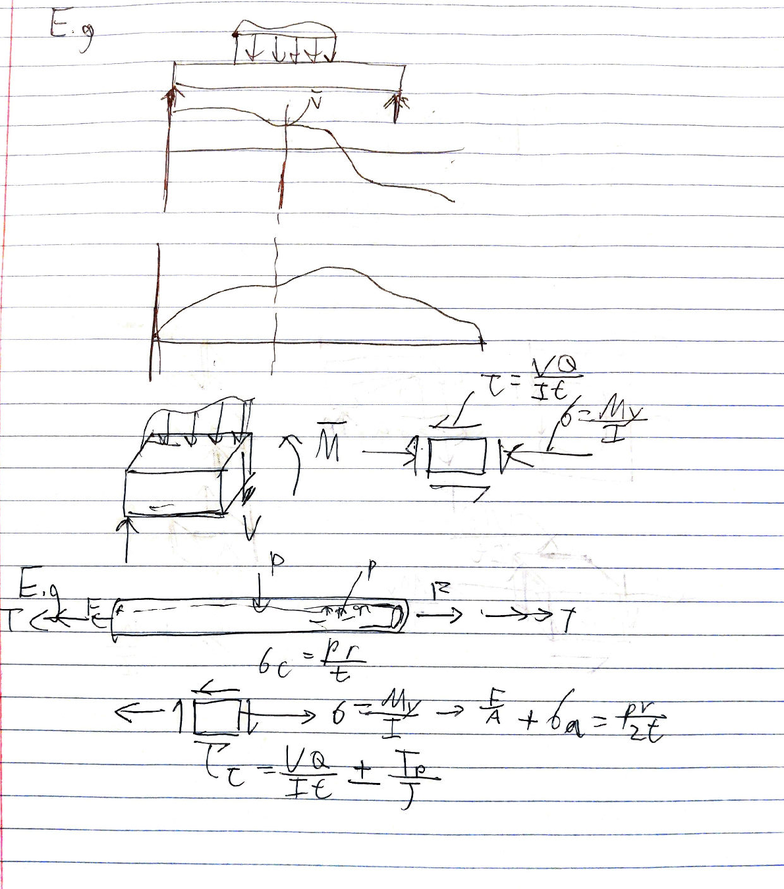 E.g
V
τ = VQ/It
σ = My/I
M̅
V
E.g
P
p
T
F
F
T
σc = pr/t
σ = My/I → F/A + σa = pr/2t
τ = VQ/It ± Tρ/J